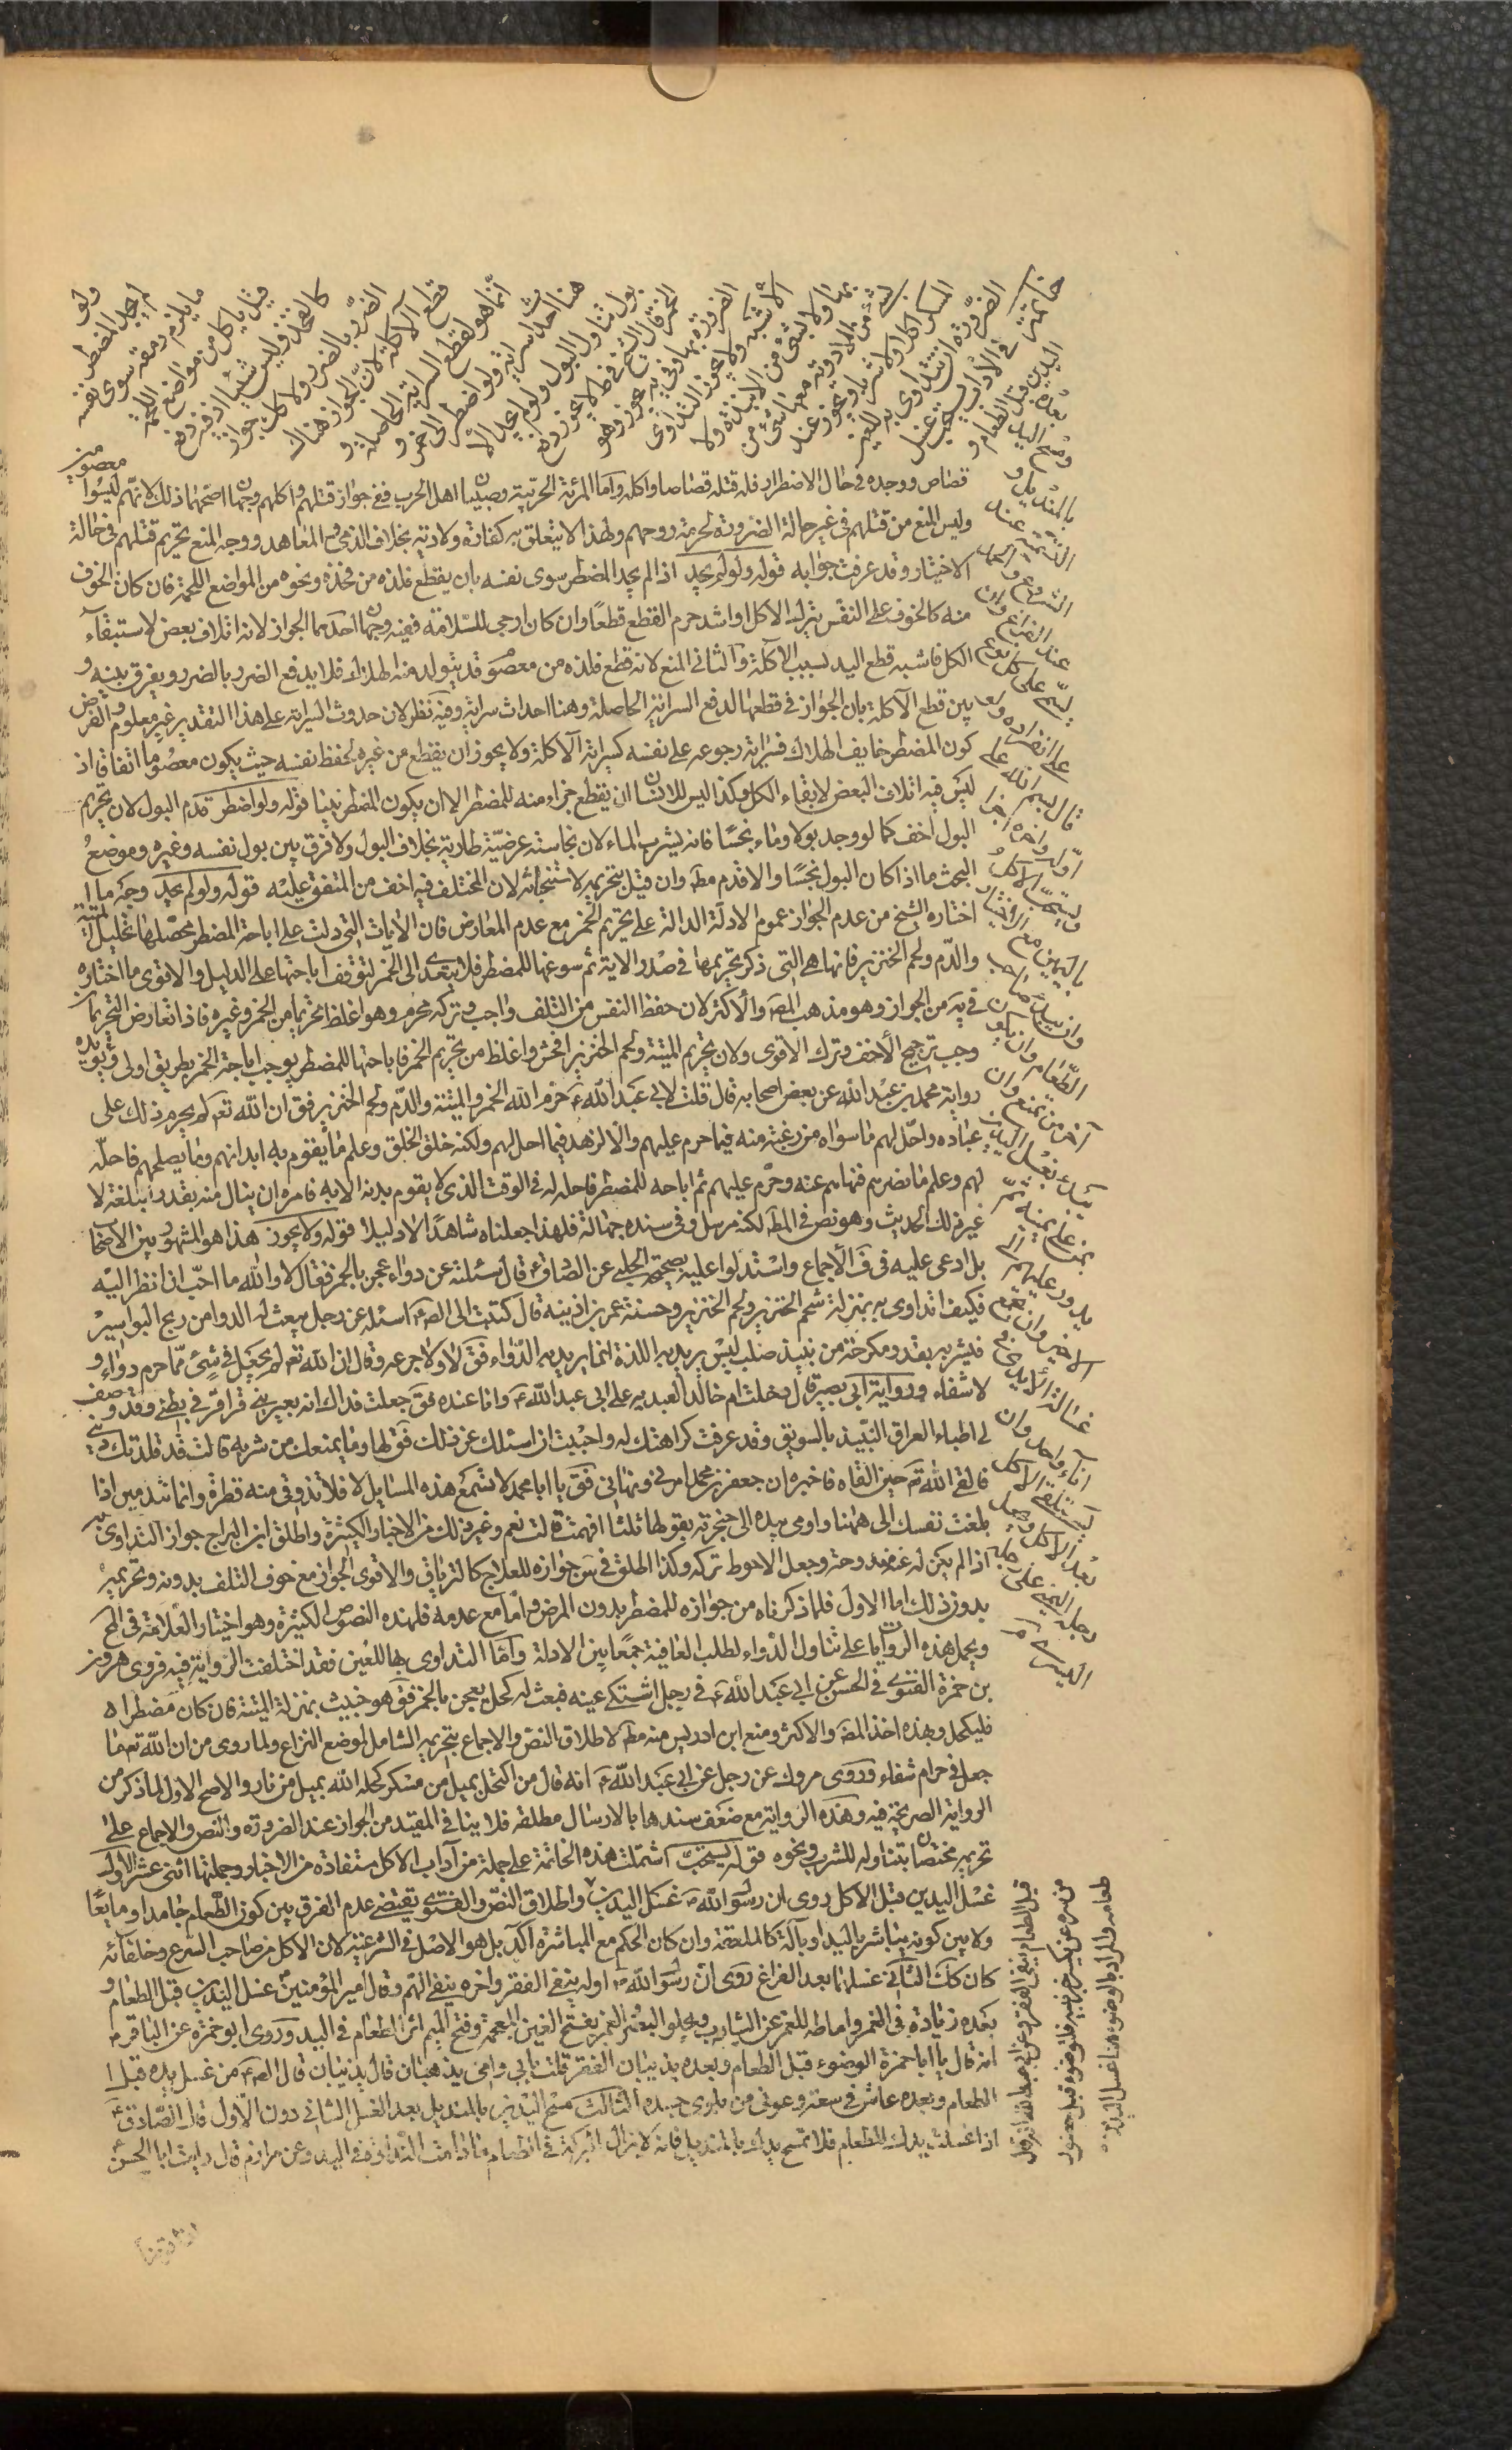 ولو
لم يجد المضطر
ما يلزم رمقه سوى نفسه
قيل ياكل من مواضع اللحمة
كالفخذ وليس شيئا اذ فيه دفع
الضرر بالضرر ولا كذلك جواز
قطع الآكلة لان الجواز هناك
انما هو لقطع السراية الحاصلة و
هنا احداث سراية ولو اضطر الى خمر و
بول تناول البول ولو لم يجد الا
الخمر قال الشيخ في ط لا يجوز دفع
الضرورة بها وفي يه يجوز وهو
الاشبه ولا يجوز التداوي
بها ولا بشئ من الانبذة ولا
بشئ من الادوية معها شئ من
المسكر اكلا ولا شربا ويجوز عند
الضرورة ان يتداوى به للعين
خاتمة في الآداب يستحب غسل
اليدين قبل الطعام و
بعده
ومسح اليد
بالمنديل و
التسمية عند
الشروع والحمد
عند الفراغ وان
يسمى على كل لون
على انفراده ولو
قال بسم الله على
اوله وآخره اجزا
ويستحب الاكل
باليمين مع الاختيار
وان يبدأ صاحب
الطعام وان يكون
آخر من يمتنع وان
يبدأ في غسل اليد
بمن على يمينه ثم
يدور عليهم الى
الاخير وان يجمع
غسالة الايدي في
اناء واحد وان
يستلقي الاكل
بعد الاكل ويجعل
رجله اليمنى على
اليسرى
قصاص ووجده في حال الاضطرار فله قتله قصاصا واكله واما المرئة الحربية وصبيان اهل الحرب ففي جواز قتلهم واكلهم وجهان اصحهما ذلك لانهم ليسوا معصومين
وليس المنع من قتلهم في غير حالة الضرورة لحرمة روحهم ولهذا لا يتعلق به كفارة ولا دية بخلاف الذمي والمعاهد ووجه المنع تحريم قتلهم في حالة
الاختيار وقد عرفت جوابه قوله ولو لم يجد اذا لم يجد المضطر سوى نفسه بان يقطع فلذة من فخذه ونحوه من المواضع اللحمة فان كان الخوف
منه كالخوف على النفس بترك الاكل او اشد حرم القطع قطعا وان كان ارجى للسلامة ففيه وجهان احدهما الجواز لانه اتلاف بعض لاستبقاء
الكل فاشبه قطع اليد بسبب الآكلة والثاني المنع لانه قطع فلذة من معصوم قد يتولد منه الهلاك فلا يدفع الضرر بالضرر ويفرق بينه و
بين قطع الآكلة بان الجواز في قطعها لدفع السراية الحاصلة وهنا احداث سراية وفيه نظر لان حدوث السراية على هذا التقدير غير معلوم والفرض
كون المضطر خايف الهلاك فسراية رجوعه على نفسه كسراية الآكلة ولا يجوز ان يقطع من غيره لحفظ نفسه حيث يكون معصوما اتفاقا اذ
ليس فيه اتلاف البعض لابقاء الكل وكذا ليس للانسان ان يقطع جزاء منه للمضطر الا ان يكون المضطر نبيا قوله ولو اضطر قدم البول لان تحريم
البول اخف كما لو وجد بولا وماء نجسا فانه يشرب الماء لان نجاسته عرضية طارية بخلاف البول ولا فرق بين بول نفسه وغيره وموضع
البحث ما اذا كان البول نجسا والا قدم مط وان قيل بتحريمه لاستخباثه لان المختلف فيه اخف من المتفق عليه قوله ولو لم يجد وجه ما
اختاره الشيخ من عدم الجواز عموم الادلة الدالة على تحريم الخمر مع عدم المعارض فان الايات التي دلت على اباحة المضطر محصلها تحليل الميتة
والدم ولحم الخنزير فانها هي التي ذكر تحريمها في صدر الاية ثم سوغها للمضطر فلا يتعدى الى الخمر لتوقف اباحتها على الدليل والاقوى ما اختاره
في يه من الجواز وهو مذهب المص والاكثر لان حفظ النفس من التلف واجب وتركه محرم وهو اغلظ تحريما من الخمر وغيره فاذا تعارض التحريمان
وجب ترجيح الاخف وترك الاقوى ولان تحريم الميتة ولحم الخنزير افحش واغلظ من تحريم الخمر فاباحتها للمضطر يوجب اباحة الخمر بطريق اولى ويؤيده
رواية محمد بن عبد الله عن بعض اصحابه قال قلت لابي عبد الله ع حرم الله الخمر والميتة والدم ولحم الخنزير فق ان الله تع لم يحرم ذلك على
عباده واحل لهم ما سواه من رغبة منه فيما حرم عليهم والا لزهد فيما احل لهم ولكنه خلق الخلق وعلم ما يقوم به ابدانهم وما يصلحهم فاحله
لهم وعلم ما يضرهم فنهاهم عنه وحرم عليهم ثم اباحه للمضطر فاحله له في الوقت الذي لا يقوم بدنه الا به فامره ان ينال منه بقدر البلغة لا
غير ذلك الحديث وهو نص في المط لكنه مرسل وفي سنده جهالة فلهذا جعلناه شاهدا لا دليلا قوله ولا يجوز هذا هو المشهور بين الاصحاب
بل ادعى عليه في ف الاجماع واستدلوا عليه بصحيحة الحلبي عن الصادق ع قال سئلته عن دواء عجن بالخمر فقال لا والله ما احب ان انظر اليه
فكيف اتداوى به بمنزلة شحم الخنزير ولحم الخنزير وحسنة عمر بن اذينة قال كتبت الى الص ع اسئله عن رجل يبعث له الدوا من ريح البواسير
فيشربه بقدر سكرجة من نبيذ صلب ليس يريد به اللذة انما يريد به الدواء فق لا ولا جرعة وقال ان الله تع لم يجعل في شئ مما حرم دواء و
لا شفاء ورواية ابي بصير قال دخلت ام خالد العبدية على ابي عبد الله ع وانا عنده فق جعلت فداك انه يعتريني قراقر في بطني وقد وصف
لي اطباء العراق النبيذ بالسويق وقد عرفت كراهتك له واحببت ان اسئلك عن ذلك فق لها وما يمنعك من شربه قالت قد قلدتك ديني
فالقى الله تع حين القاه فاخبره ان جعفر بن محمد امرني ونهاني فق يا ابا محمد لا تسمع هذه المسايل لا فلا تذوقي منه قطرة وانما تندمين اذا
بلغت نفسك الى ههنا واومى بيده الى حنجرته يقولها ثلثا افهمت قالت نعم وغير ذلك من الاخبار الكثيرة واطلق ابن البراج جواز التداوي به
اذا لم يكن له عنه مندوحة وجعل الاحوط تركه وكذا اطلق في س جوازه للعلاج كالترياق والاقوى الجواز مع خوف التلف بدونه وتحريمه
بدون ذلك اما الاول فلما ذكرناه من جوازه للمضطر بدون المرض واما مع عدمه فلهذه النصوص الكثيرة وهو اختيار العلامة في لح
ويحمل هذه الروايات على تناول الدواء لطلب العافية جمعا بين الادلة واما التداوي بها للعين فقد اختلفت الرواية فيه فروى هرون
بن حمزة الغنوي في الحسن عن ابي عبد الله ع في رجل اشتكى عينه فبعث له كحل يعجن بالخمر فق هو خبيث بمنزلة الميتة فان كان مضطرا
فليكتحل وبهذه اخذ المص والاكثر ومنع ابن ادريس منه مط لاطلاق النص والاجماع بتحريمه الشامل لموضع النزاع ولما روى من ان الله تع ما
جعل في حرام شفاء وروى مروك عن رجل عن ابي عبد الله ع انه قال من اكتحل بميل من مسكر كحله الله بميل من نار والاصح الاول لما ذكر من
الرواية الصريحة فيه وهذه الرواية مع ضعف سندها بالارسال مطلقة فلا ينافي المقيد من الجواز عند الضرورة والنص والاجماع على
تحريمه مختصان بتناوله للشرب ونحوه قوله يستحب اشتملت هذه الخاتمة على جملة من آداب الاكل مستفادة من الاخبار وجملتها اثنى عشر الاول
غسل اليدين قبل الاكل روى ان رسول الله ص غسل اليدين واطلاق النص والفتوى يقتضي عدم الفرق بين كون الطعام جامدا ومايعا
ولا بين كونه يباشر باليد او بآلة كالملعقة وان كان الحكم مع المباشرة آكد بل هو الاصل في الشرعية لان الاكل من صاحب الشرع وخلفائه
كان كك الثاني غسلها بعد الفراغ روى ان رسول الله ص اوله ينفي الفقر واخره ينفي الهم وقال امير المؤمنين غسل اليدين قبل الطعام و
بعده زيادة في العمر واماطة للغمر عن الثياب ويجلو البصر الغمر بفتح الغين المعجمة وفتح الميم اثر الطعام في اليد وروى ابو حمزة عن الباقر ع
انه قال يا ابا حمزة الوضوء قبل الطعام وبعده يذيبان الفقر قلت بابي وامي يذهبان قال يذيبان قال الص ع من غسل يده قبل
الطعام وبعده عاش في سعة وعوفي من بلوى جسده الثالث مسح اليدين بالمنديل بعد الغسل الثاني دون الاول قال الصادق ع
اذا غسلت يدك للطعام فلا تمسح يدك بالمنديل فانه لا تزال البركة في الطعام ما دامت النداوة في اليد وعن مرازم قال رايت ابا الحسن
قبل الطعام ينفي الفقر وعن ابي عبد الله انه قال
من سره ان يكثر خير بيته فليتوضؤ قبل حضور
طعامه والمراد بالوضوء هنا غسل اليدين